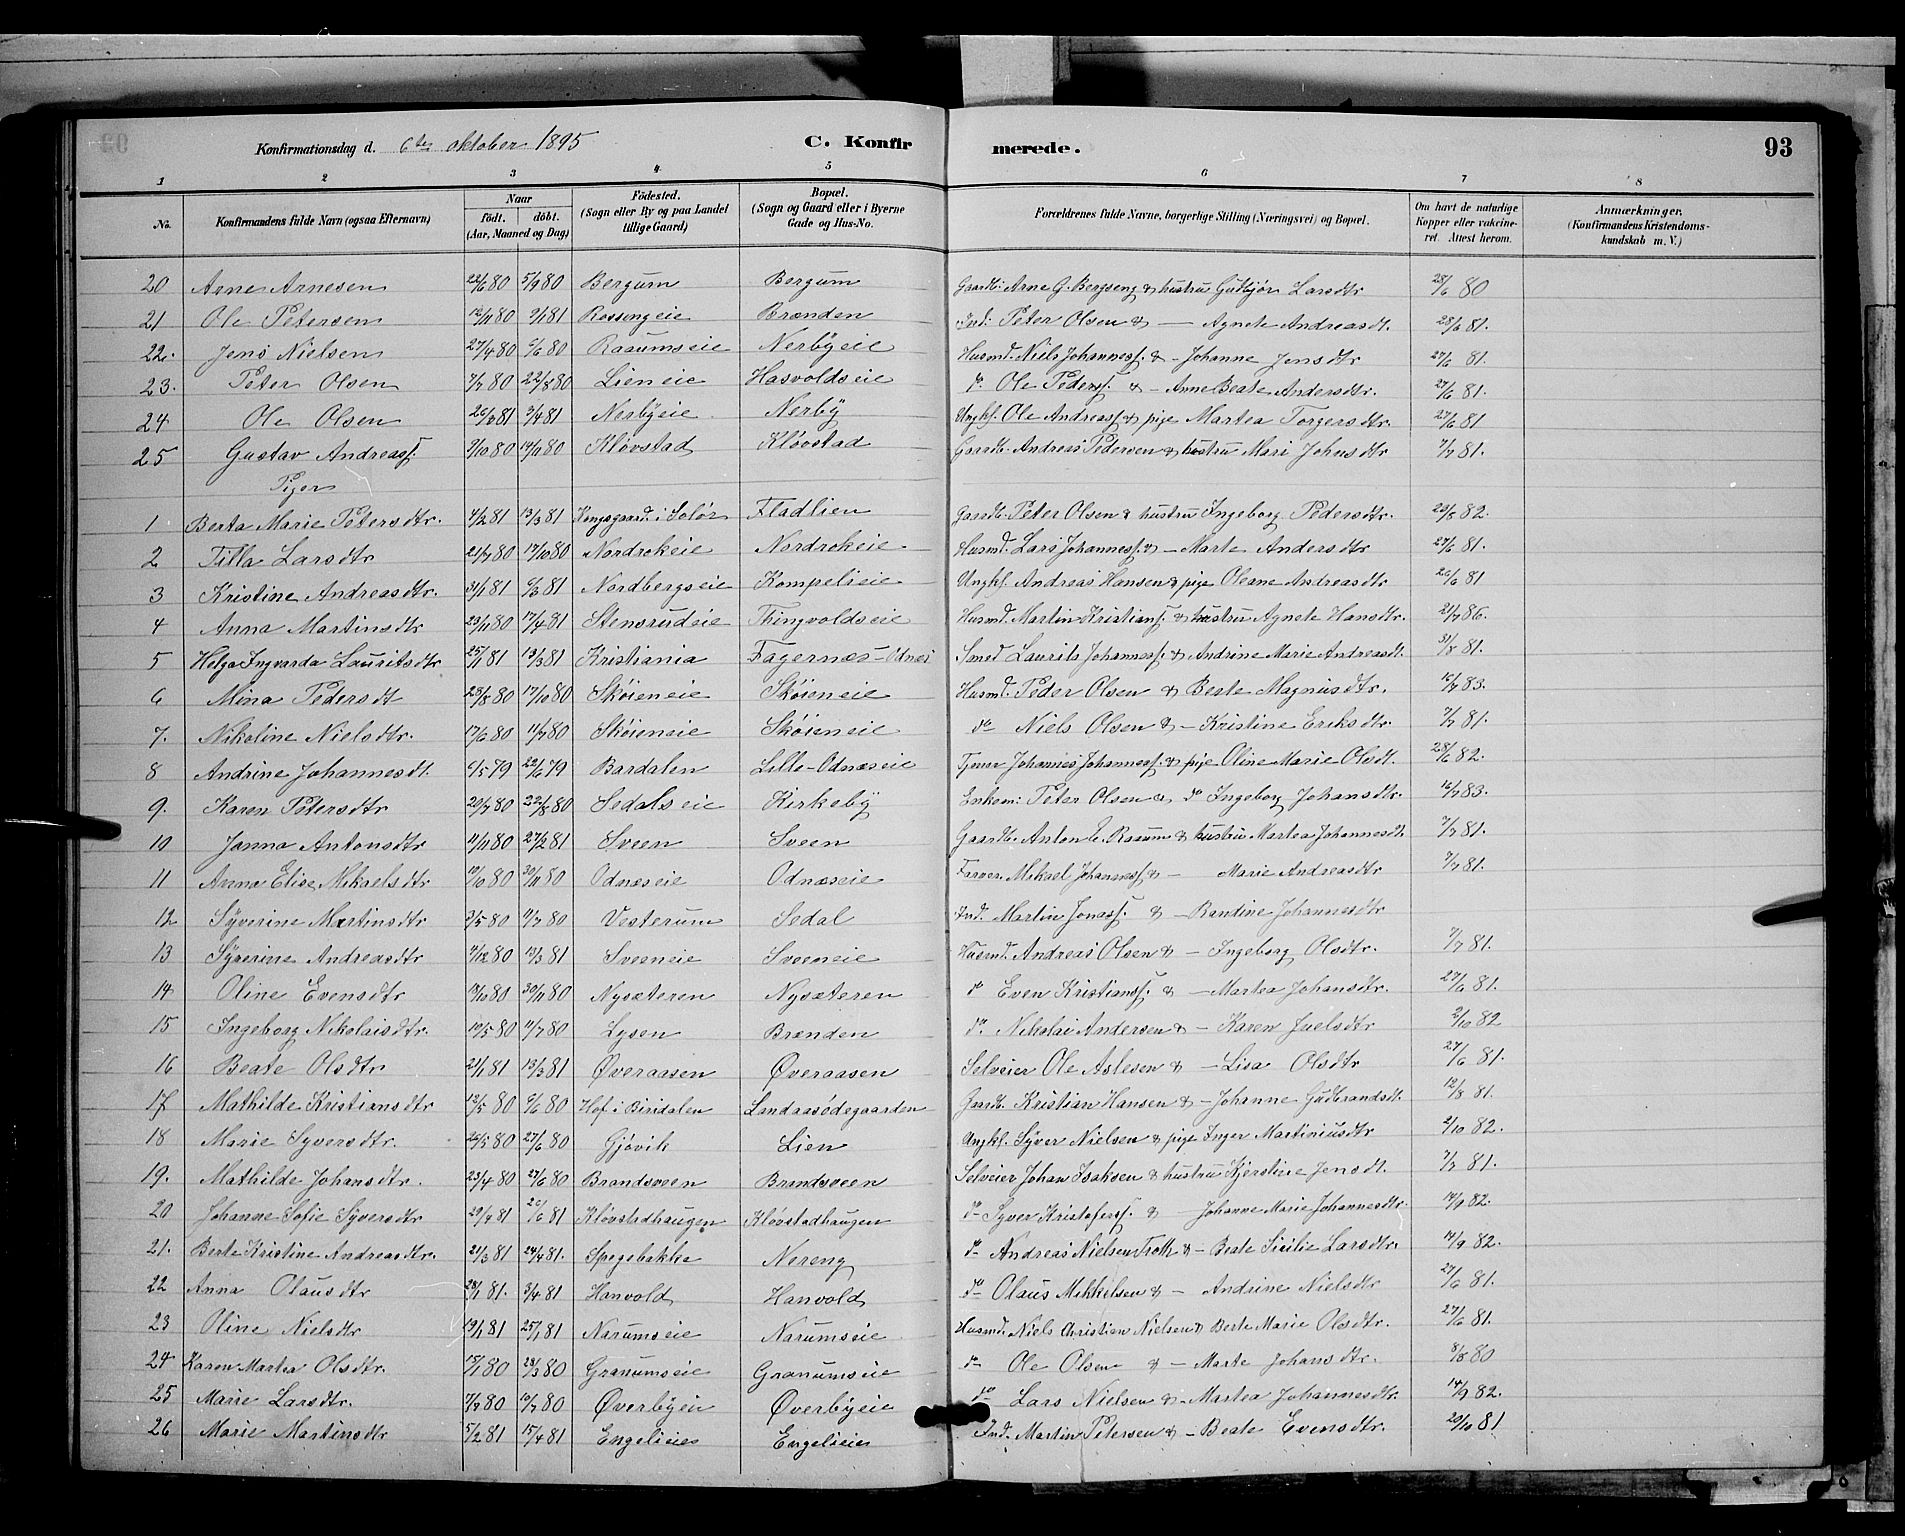 Konfirmationsdag d. 6te oktober 1895 C. Konfirmerede. 93
1 2 3 4 5 6 7 8
No. Konfirmandens fulde Navn (ogsaa Efternavn) Naar født. døbt. (Aar, Maaned og Dag) Födested. (Sogn eller By og paa Landet tillige Gaard) Bopæl. (Sogn og Gaard eller i Byerne Gade og Hus-No. Forældrenes fulde Navne, borgerlige Stilling (Næringsvei) og Bopæl. Om havt de naturlige Kopper eller vakcineret. Attest herom. Anmærkninger. (Konfirmandens Kristendomskundskab m. V.)
20 Arne Arnesen 22/6 80 5/9 80 Bergum Bergum Gaardb. Arne G. Bergseng & hustru Gudbjør Larsdtr 28/6 80
21 Ole Petersen 12/11 80 2/1 81 Rossengeie Brænden Ind. Peter Olsen & — Agnete Andreasdt. 28/6 81.
22. Jens Nielsen 27/4 80 6/6 80 Raaumseie Nerbyeie Husmd. Niels Johannesf. & - Johanne Jensdtr 27/6 81.
23. Peter Olsen 7/7 80 22/8 80 Lieneie Hasvoldseie do Ole Pedersf. & - Anne Beate Andersdtr. 27/6 81.
24 Ole Olsen 3/4 81 Nerbyeie Nerby Ungkf. Ole Andreasf. & pige Martea Torgersdtr. 27/6 81
25 Gustav Andreasf. 2/10 80 14/11 80 Kløvstad Kløvstad Gaardb. Andreas Pedersen & hustru Mari Johnsdtr 7/7 81.
Piger
1 Berta Marie Petersdtr. 4/2 81 13/3 81 Kongsgaard i Solør Fladlien Gardb. Peter Olsen & hustru Ingeborg Pedersdtr. 82.
2 Tilla Larsdtr 21/7 80 17/10 80 Nordrokeie Nordrokeie Husmd. Lars Johannesf. & - Marte Andersdtr 27/6 81.
3 Kristine Andreasdtr. 31/1 81 6/3 81 Nordbergseie Kompelieie Ungkf. Andreas Hansen & pige Oleane Andreasdtr 81
4 Anna Martinsdtr 23/11 80 17/4 81 Stensrudeie Thingvoldseie Husmd. Martin Kristiansf. & hustru Agnete Hansdtr. 21/7 86.
5 Helga Ingvarda Lauritsdtr 25/1 81 13/3 81 Kristiania Fagernæs-Odnæs Smed Laurits Johannesf. & Andrine Marie Andreasdt. 31/8 81.
6 Mina Pedersdt 23/8 80 17/10 80 Skøieneie Skøieneie Husmd. Peder Olsen & Beate Magnusdtr. 83.
7. Nikoline Nielsdtr. 17/6 80 11/7 80 Skøieneie Skøieneie do Niels Olsen & - Kristine Eriksdtr. 7/7 81.
8 Andrine Johannesdt. 4/5 79 22/6 79 Bardalen Lille-Odnæseie Tjener Johannes Johannesf. & pige Oline Marie Olsdt. 28/6 82.
9. Karen Petersdtr 20/7 80 22/8 80 Sedalseie Kirkeby Enkem. Peter Olsen & do Ingeborg Johansdtr. 16/7 83.
10 Janna Antonsdtr 11/11 80 27/2 81 Sveen Sveen Gaardb. Anton E. Raaum & hustru Martea Johannesdt. 7/7 81.
11 Anna Elise Mikaelsdtr 19/10 80 30/11 80 Odnæseie Odnæseie Farver Mikael Johannesf. & - Marie Andreasdtr 7/7 81.
12 Syverine Martinsdtr 3/5 80 11/7 80 Vesterum Sedal Ind. Martin Jonasf. & - Randine Johannesdtr
13 Syverine Andreasdtr 4/12 80 13/3 81 Sveeneie Sveeneie Husmd. Andreas Olsen & - Ingeborg Olsdtr. 7/7 81.
14 Oline Evensdtr 19/10 80 30/11 80 Nysæteren Nysæteren do Even Kristiansf. & - Martea Johansdtr. 27/6 81.
15 Ingeborg Nikolaisdtr. 19/5 80 11/7 80 Lysen Brænden do. Nikolai Andersen & - Karen Juelsdtr 2/10 82
16 Beate Olsdtr 21/1 81 13/3 81 Øveraasen Øveraasen Selveier Ole Aslesen & - Lisa Olsdtr 27/6 81.
17 Mathilde Kristiansdtr 13/5 80 6/6 80 Hof i Biridalen Landaasødegaarden Gaardb. Kristian Hansen & - Johanne Gudbrandsdt. 12/8 81.
18 Marie Syversdtr. 80 27/6 80 Gjøvik Lien Ungkf. Syver Nielsen & pige Inger Martiniusdtr 2/10 82.
19. Mathilde Johansdtr. 23/4 80 27/6 80 Brandsveen Brandsveen Selveier Johan Isaksen & hustru Kjerstine Jensdt. 7/7 81.
20 Johanne Sofie Syversdtr 29/4 81 26/6 81 Kløvstadhaugen Kløvstadhaugen do Syver Kristofersf. & Johanne Marie Johannesdtr. 14/9 82.
21. Berte Kristine Andreasdtr. 21/3 81 24/4 81. Spegebakke Nereng do Andreas Nielsen Troth & - Beate Sicilie Larsdtr. 14/9 82.
22 Anna Olausdtr 28/1 81. 3/4 81 Hanvold Hanvold do Olaus Mikkelsen & - Andrine Nielsdtr 27/6 81.
23 Oline Nielsdtr 19/1 81 25/1 81 Narumseie Narumseie Husmd. Niels Christian Nielsen & Berte Marie Olsdtr. 27/6 81.
24 Karen Martea Olsdtr. 15/1 80 28/3 80 Granumseie Granumseie do Ole Olsen & - Marte Johansdtr. 8/8 80
25 Marie Larsdtr. 7/7 80 19/7 80 Øverbyeie Øverbyeie do Lars Nielsen & - Martea Johannesdtr. 14/9 82.
26 Marie Martinsdtr 5/2 81 15/4 81 Engelieie Engelieie Ind. Martin Petersen & - Beate Evensdtr. 20/10 81